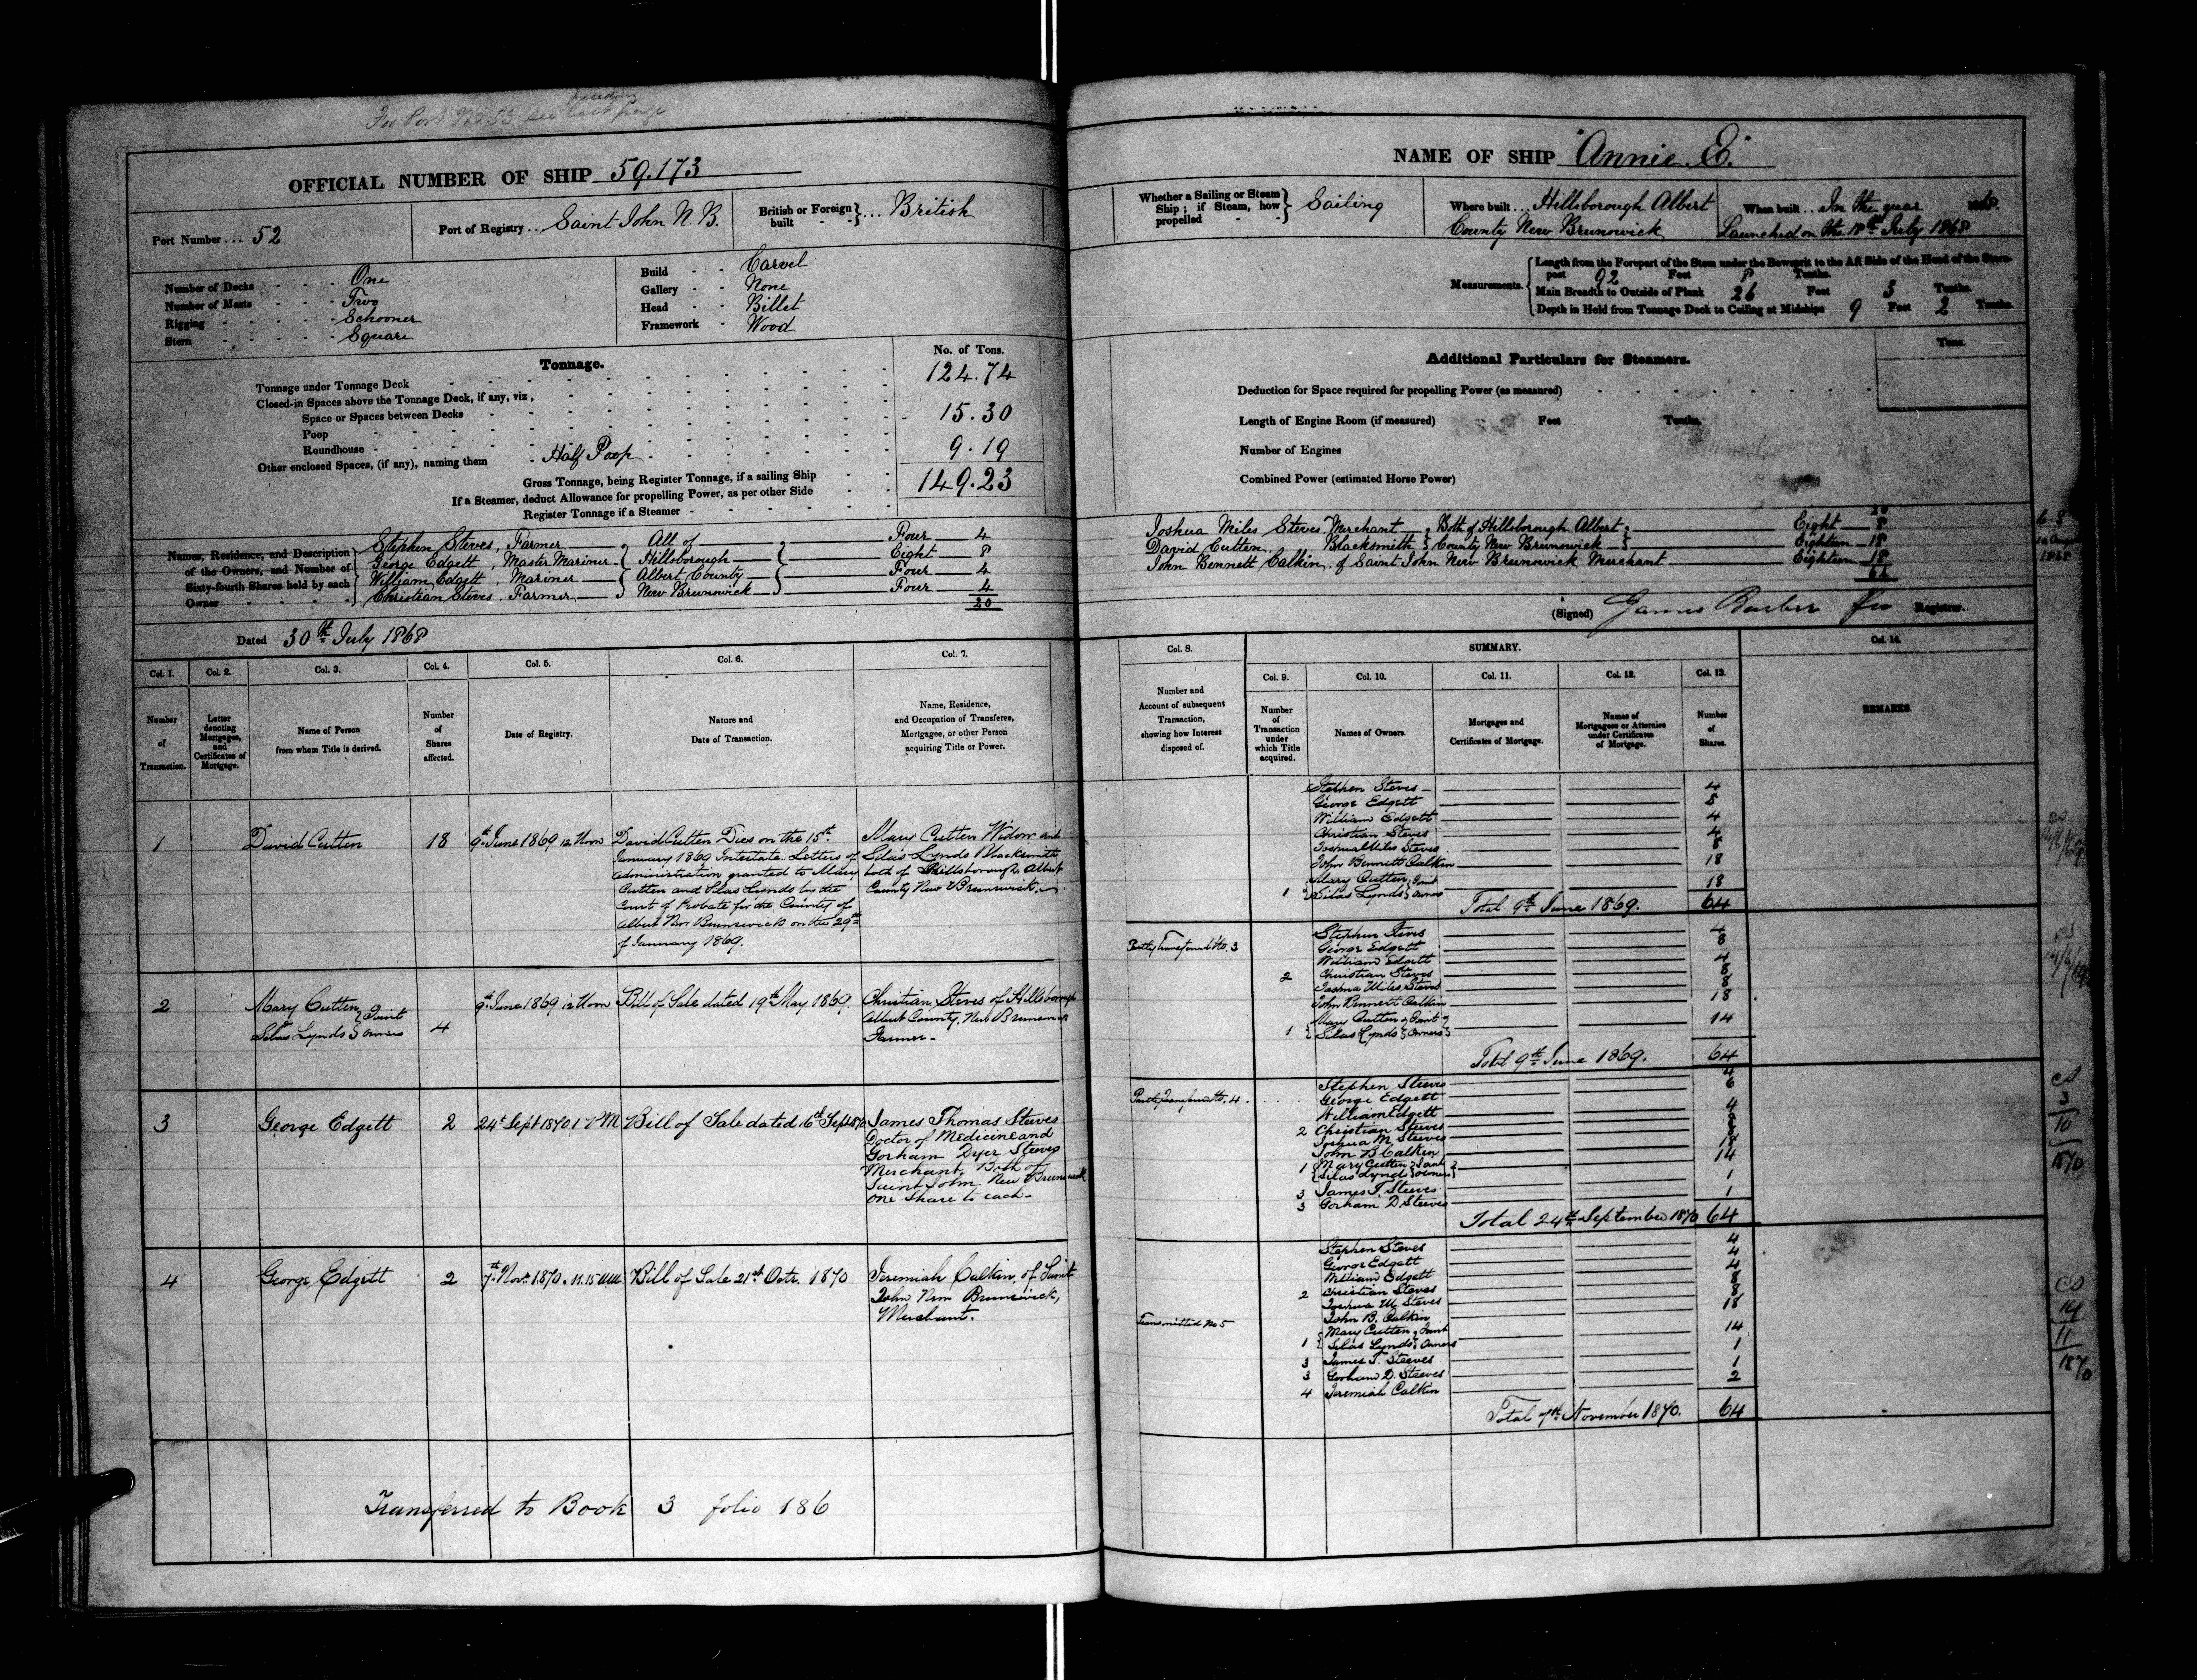 For Port No 53 see preceding last page
OFFICIAL NUMBER OF SHIP 59.173
Port Number... 52
Port of Registry... Saint John N.B.
British or Foreign built - - } ... British
Number of Decks - - - One
Number of Masts - - - Two
Rigging - - - Schooner
Stern - - - Square
Build - - Carvel
Gallery - - None
Head - - Billet
Framework - Wood
Tonnage.
No. of Tons.
Tonnage under Tonnage Deck 124.74
Closed-in Spaces above the Tonnage Deck, if any, viz,
Space or Spaces between Decks 15.30
Poop
Roundhouse
Other enclosed Spaces, (if any), naming them - Half Poop 9.19
Gross Tonnage, being Register Tonnage, if a sailing Ship 149.23
If a Steamer, deduct Allowance for propelling Power, as per other Side
Register Tonnage if a Steamer
Names, Residence, and Description of the Owners, and Number of Sixty-fourth Shares held by each Owner
Stephen Steves, Farmer } All of } Four 4
George Edgett, Master Mariner } Hillsborough } Eight 8
William Edgett, Mariner } Albert County } Four 4
Christian Steves, Farmer } New Brunswick } Four 4
20
Dated 30th July 1868
NAME OF SHIP "Annie E."
Whether a Sailing or Steam Ship; if Steam, how propelled } Sailing
Where built... Hillsborough Albert
County New Brunswick
When built... In the year 1868.
Launched on the 18th July 1868
Measurements.
Length from the Forepart of the Stem under the Bowsprit to the Aft Side of the Head of the Stern-
post 92 Feet 8 Tenths.
Main Breadth to Outside of Plank 26 Feet 3 Tenths.
Depth in Hold from Tonnage Deck to Ceiling at Midships 9 Feet 2 Tenths.
Additional Particulars for Steamers.
Tons.
Deduction for Space required for propelling Power (as measured)
Length of Engine Room (if measured) Feet Tenths.
Number of Engines
Combined Power (estimated Horse Power)
20
Joshua Miles Steves Merchant } Both of Hillsborough Albert } Eight 8
David Cutten Blacksmith } County New Brunswick } Eighteen 18
John Bennett Calkin of Saint John New Brunswick Merchant Eighteen 18
64
1868
(Signed) James Barber Registrar.
Col. 1. Col. 2. Col. 3. Col. 4. Col. 5. Col. 6. Col. 7.
Number of Transaction.
Letter denoting Mortgages, and Certificates of Mortgage.
Name of Person from whom Title is derived.
Number of Shares affected.
Date of Registry.
Nature and Date of Transaction.
Name, Residence, and Occupation of Transferee, Mortgagee, or other Person acquiring Title or Power.
Col. 8.
Number and Account of subsequent Transaction, showing how Interest disposed of.
SUMMARY.
Col. 9. Col. 10. Col. 11. Col. 12. Col. 13. Col. 14.
Number of Transaction under which Title acquired.
Names of Owners.
Mortgages and Certificates of Mortgage.
Names of Mortgagees or Attornies under Certificates of Mortgage.
Number of Shares.
REMARKS.
1 David Cutten 18 9th June 1869 12 Noon
David Cutten Dies on the 15th
January 1869 Intestate. Letters of
administration granted to Mary
Cutten and Silas Lynds by the
Court of Probate for the County of
Albert New Brunswick on the 29th
of January 1869.
Mary Cutten Widow and
Silas Lynds Blacksmith
both of Hillsborough Albert
County New Brunswick.
Stephen Steves 4
George Edgett 8
William Edgett 4
Christian Steves 4
Joshua Miles Steves 8
John Bennett Calkin 18
1 { Mary Cutten } Joint 18
Silas Lynds } Owners
Total 9th June 1869. 64
2 Mary Cutten } Joint
Silas Lynds } Owners 4
9th June 1869 12 Noon Bill of Sale dated 19th May 1869.
Christian Steves of Hillsborough
Albert County, New Brunswick
Farmer.
Partly Transferred No. 3
Stephen Steves 4
George Edgett 8
William Edgett 4
2 Christian Steves 8
Joshua Miles Steves 8
John Bennett Calkin 18
1 { Mary Cutten } Joint 14
Silas Lynds } Owners
Total 9th June 1869. 64
3 George Edgett 2 24th Sept 1870 1 PM Bill of Sale dated 16th Sept 1870
James Thomas Steeves
Doctor of Medicine and
Gorham Dyer Steeves
Merchant, Both of
Saint John New Brunswick
One Share to each.
Partly Transferred No. 4.
Stephen Steeves 4
George Edgett 6
William Edgett 4
2 Christian Steeves 8
Joshua M. Steeves 8
John B Calkin 18
1 { Mary Cutten } Joint 14
Silas Lynds } Owners
3 James T. Steeves 1
3 Gorham D Steeves 1
Total 24th September 1870 64
4 George Edgett 2 7th Novr. 1870. 11.15 AM Bill of Sale 21st Octr. 1870
Jeremiah Calkin, of Saint
John New Brunswick,
Merchant.
Transmitted No 5
Stephen Steves 4
George Edgett 4
William Edgett 4
2 Christian Steves 8
Joshua M. Steves 8
John B. Calkin 18
1 { Mary Cutten } Joint 14
Silas Lynds } Owners
3 James T. Steeves 1
3 Gorham D. Steeves 1
4 Jeremiah Calkin 2
Total 7th November 1870. 64
14/6/69
14/6/69
3
10
1870
14
11
1870
Transferred to Book 3 folio 186